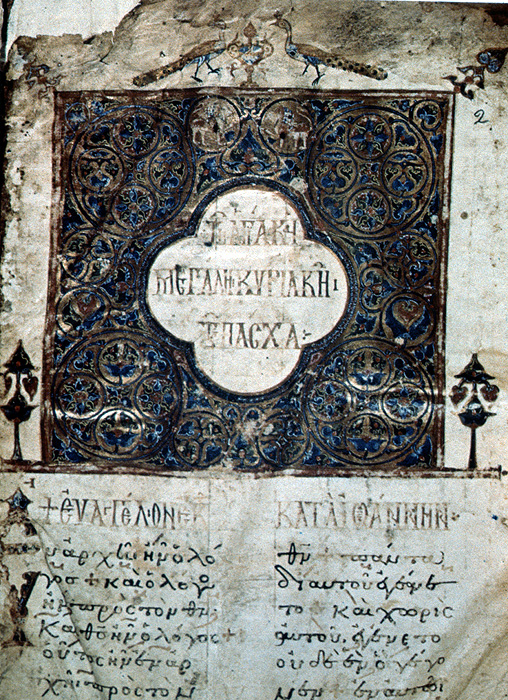 2
ΤΗ ΑΓΙΑ ΚΑΙ
ΜΕΓΑΛΗ ΚΥΡΙΑΚΗ:
Τ ΠΑΣΧΑ:
+ ΕΥΑΓΕΛΟΝ ΕΚ
ΚΑΤΑ ΙΩΑΝΝΗΝ
ἀρχῆ ἦν ὁ λό
γος + καὶ ὁ λόγος
ἦν πρὸς τὸν θν·
Καὶ θς ἦν ὁ λόγος +
οὗτος ἦν ἐν ἀρ
χῆ πρὸς τὸν
θν + πάντα
δι αὐτοῦ ἐγένε
το + καὶ χωρὶς
αὐτοῦ, ἐγένετο
οὐδὲ ἓν ὃ γέγο
νεν ἐν αὐτῶ